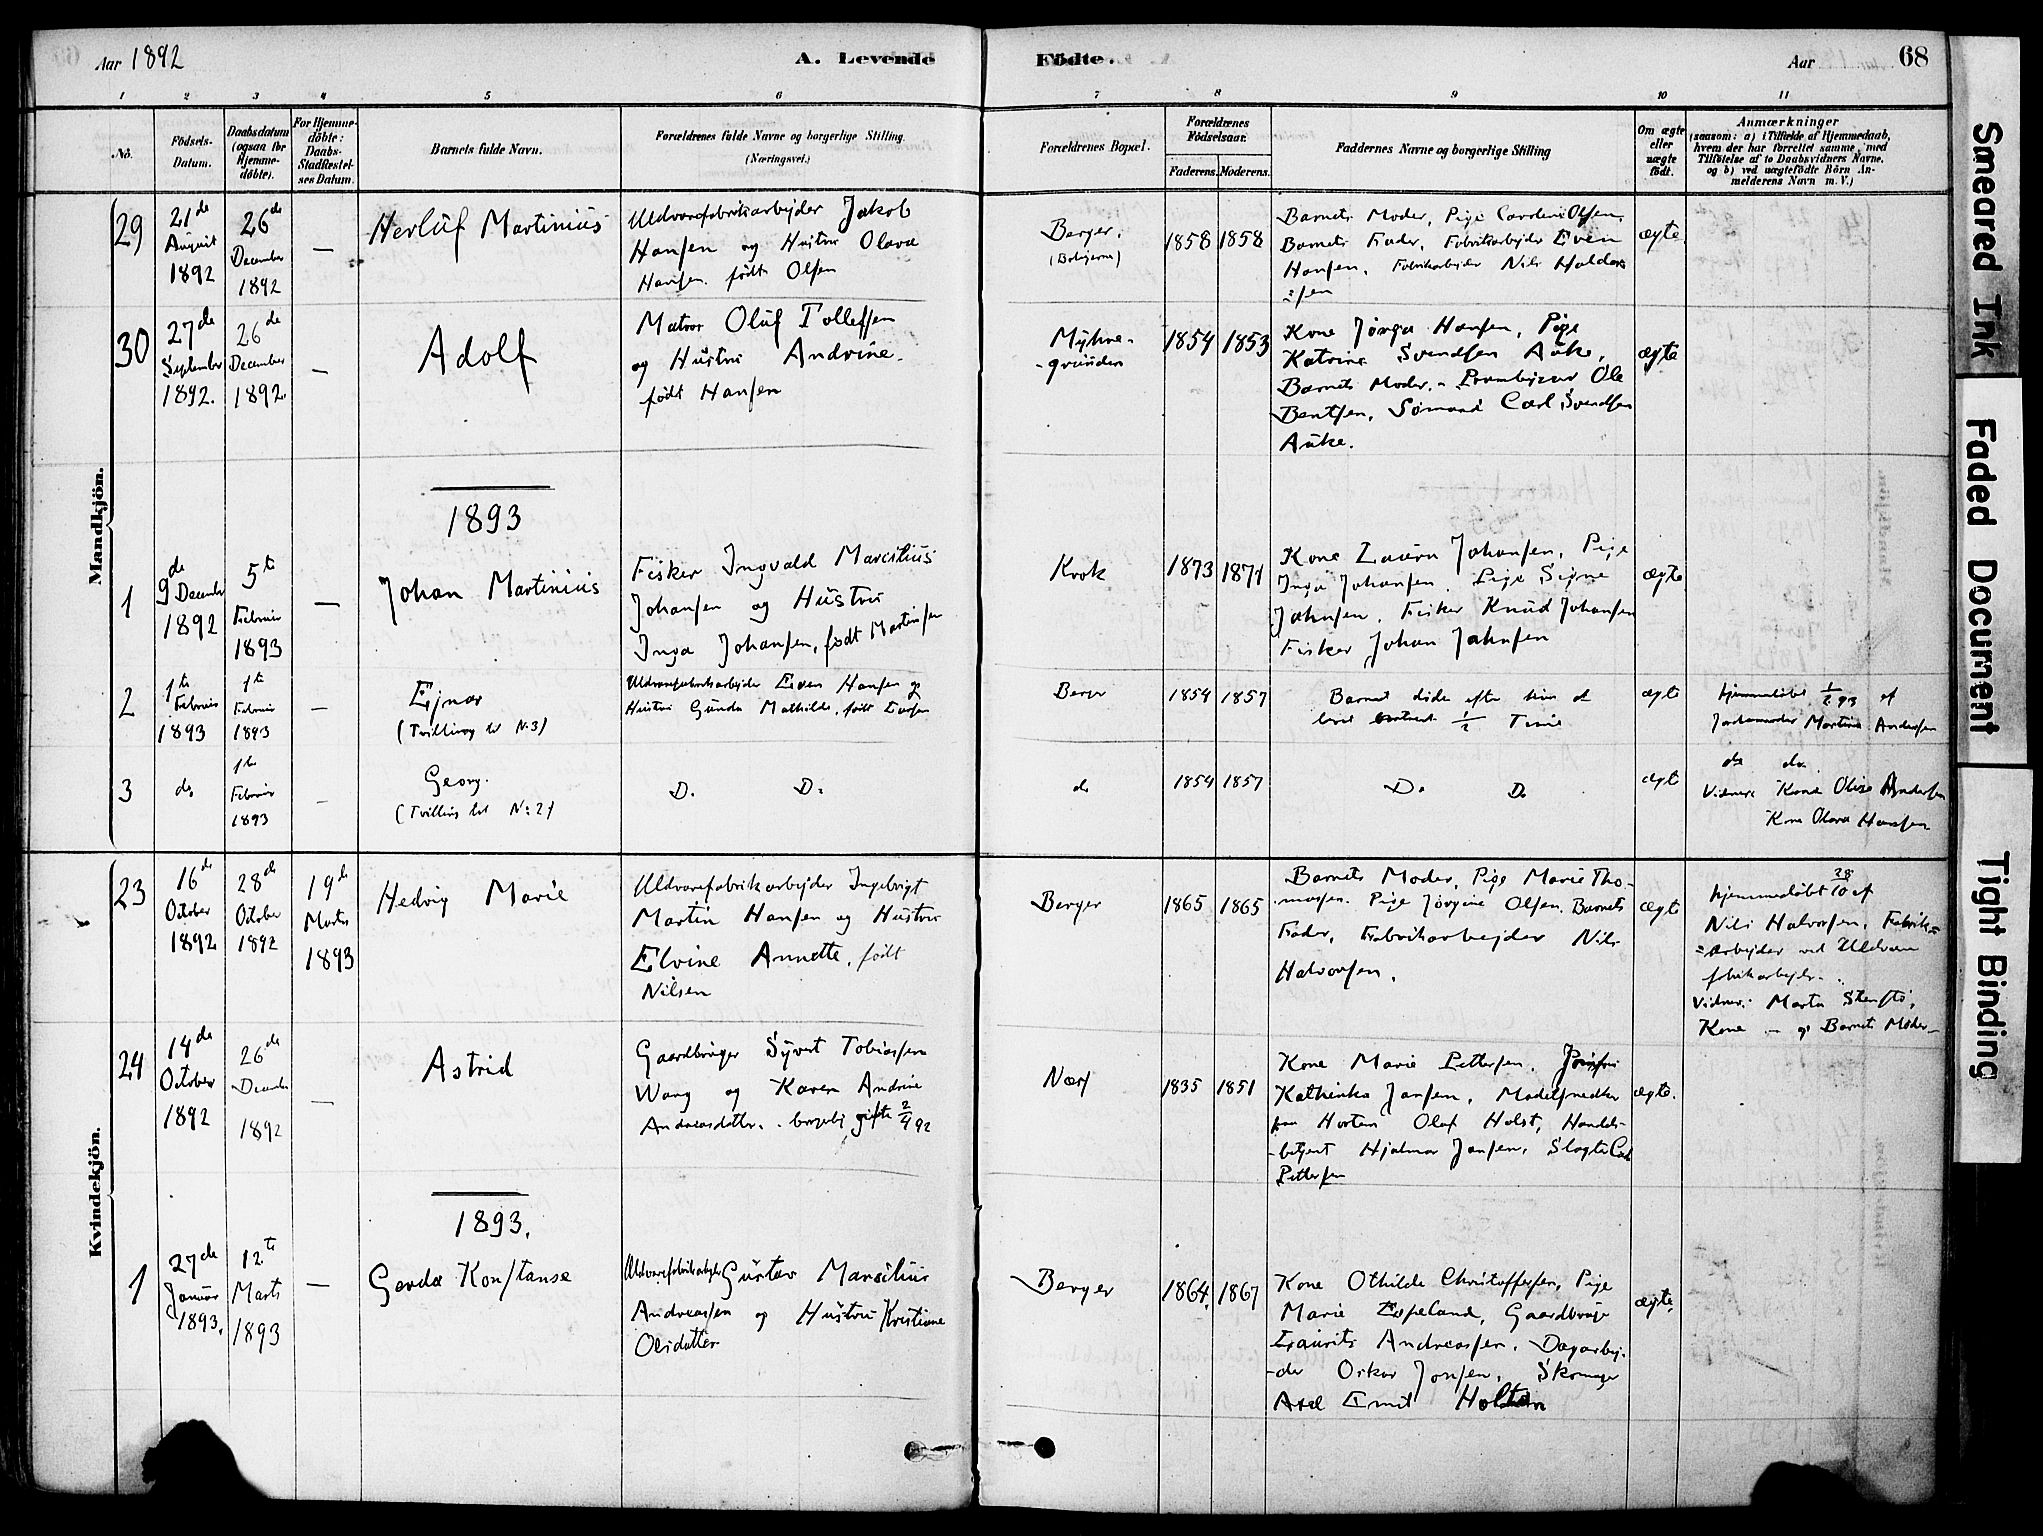 Aar 1892
A. Levende Födte.
Aar
68
1 2 3 4 5 6 7 8 9 10 11
No.
Födsels-
Datum.
Daabsdatum
(ogsaa for
Hjemme-
döbte).
For Hjemme-
döbte:
Daabs-
Stadfæstel-
ses Datum.
Barnets fulde Navn.
Forældrenes fulde Navne og borgerlige Stilling.
(Næringsvei.)
Forældrenes Bopæl.
Forældrenes
Födselsaar.
Faderens. Moderens.
Faddernes Navne og borgerlige Stilling
Om ægte
eller
uægte
födt.
Anmærkninger
(saasom: a) i Tilfælde af Hjemmedaab,
hvem der har forrettet samme, med
Tilföielse af to Daabsvidners Navne,
og b) ved uægtefödte Börn An-
melderens Navn m. V.)
Mandkjön.
29
21de
August
1892
26de
December
1892
—
Herluf Martinius
Uldvarefabrikarbejder Jakob
Hansen og Hustru Olava
Hansen født Olsen
Berger.
(Boligerne)
1858 1858
Barnets Moder, Pige Caroline Olsen,
Barnets Fader, Fabrikarbejder Even
Hansen, Fabrikarbejder Nils Haldor-
sen
ægte
30
27de
September
1892.
26de
December
1892.
—
Adolf
Matros Oluf Tollefsen
og Hustru Andrine
født Hansen
Myhre-
grunden
1854 1853
Kone Jørga Hansen, Pige
Katrine Svendsen Auke,
Barnets Moder, Ole
Bentsen, Sømand Carl Svendsen
Auke.
ægte
1893
1
9de
December
1892
5te
Februar
1893
—
Johan Martinius
Fisker Ingvald Marcilius
Johansen og Hustru
Inga Johansen, født Martinsen
Krok
1873 1871
Kone Laura Johansen, Pige
Inga Johansen, Pige Signe
Johnsen, Fisker Knud Johansen
Fisker Johan Johnsen
ægte
2
1te
Februar
1893
1te
Februar
1893
—
Ejnar
(Tvilling til N:3)
Uldvarefabrikarbejder Even Hansen og
Hustru Gunda Mathilde, født
Berger
1854 1857
Barnet døde efter kun at
levet 1/2 Time
ægte
hjemmedøbt 1/2 93 af
Jordemoder Martine Andersen
3
do.
1te
Februar
1893
—
Georg.
(Tvilling til N:2)
Do Do
do
1854 1857
Do Do
ægte
do do.
Vidner: Kone Olise Andersen
Kone Olava Hansen
Kvindekjön.
23
16de
October
1892
28de
October
1892
19de
Marts
1893
Hedvig Marie
Uldvarefabrikarbejder Ingebrigt
Martin Hansen og Hustru
Elvine Annette, født
Nilsen
Berger
1865 1865
Barnets Moder, Pige Marie Tho-
massen. Pige Jørgine Olsen. Barnets
Fader, Fabrikarbejder Nils
Halvorsen.
ægte
hjemmedøbt 28/10 af
Nils Halvorsen, Fabrik-
arbejder ved Uldvare
fabrikarbejder.
Vidner: Marta
Kone — og Barnets Moder
24
14de
October
1892
26de
December
1892
—
Astrid
Gaardbruger Syvert Tobiassen
Wang og Karen Andrine
Andreasdatter, borgerlig gifte 2/4 92
Næs
1835 1851
Kone Marie Pettersen, Jomfru
Kathinka Jansen, Modelsnedker
fra Horten Olaf Holst, Handels-
betjent Hjalmar Jansen, Slagter Carl
Pettersen
ægte.
1893.
1
27de
Januar
1893.
12te
Marts
1893
—
Gerda Konstanse
Uldvarefabrikarbejder Gustav Marcilius
Andreassen og Hustru Kristiane
Olsdatter
Berger
1864. 1867
Kone Othilde Christoffersen, Pige
Marie Espeland, Gaardbruger
Laurits Andreassen, Dagarbej-
der Oskar Jonsen, Skomager
Axel Emil Holtan
ægte.
Smeared Ink
Faded Document
Tight Binding